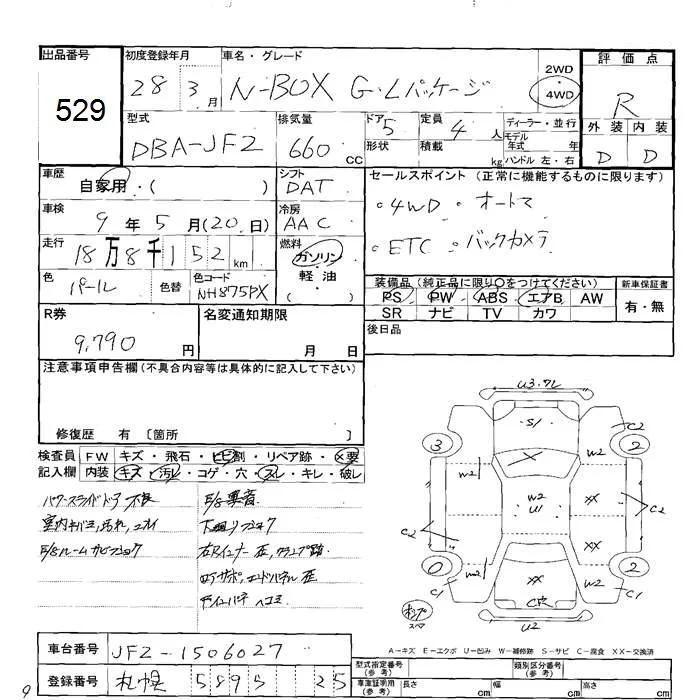 出品番号
529
初度登録年月
28 3月
車名・グレード
N-BOX G・Lパッケージ
2WD
・
4WD
評価点
R
型式
DBA-JF2
排気量
660 cc
ドア 5
形状
定員 4 人
積載 kg
ディーラー・並行
モデル年式 年
ハンドル 左・右
外装 内装
D D
車歴
自家用・( )
シフト
DAT
車検
9年5月(20日)
冷房
AAC
走行
18万8千152km
燃料
ガソリン
・
軽油
色
パール
色替
色コード
NH875PX
セールスポイント (正常に機能するものに限ります)
・4WD ・オートマ
・ETC ・バックカメラ
装備品(純正品に限り〇をつけてください)
PS PW ABS エアB AW
SR ナビ TV カワ
新車保証書
有・無
後日品
R券
9,790 円
名変通知期限
月 日
注意事項申告欄(不具合内容等は具体的に記入して下さい)
修復歴 有 〔箇所 〕
検査員記入欄
FW キズ・飛石・ヒビ割・リペア跡・×要
内装 キズ・汚レ・コゲ・穴・スレ・キレ・破レ
パワースライドドア不良
E/g異音
室内キバミ,汚れ,ニオイ
E/gルームサビフショク
U3.7L
S1
X
W2
U1
XX
C穴
U2
3
2
0
2
W2
W2
XX
XX
W2
C2
C2
C2
C1
C1
A-キズ E-エクボ U-凹み W-補修跡 S-サビ C-腐食 XX-交換済
車台番号
JF2-1506027
登録番号
札幌 589S 25
型式指定番号(参考)
類別区分番号(参考)
車庫証明用(参考)
長さ cm 幅 cm 高さ cm
9